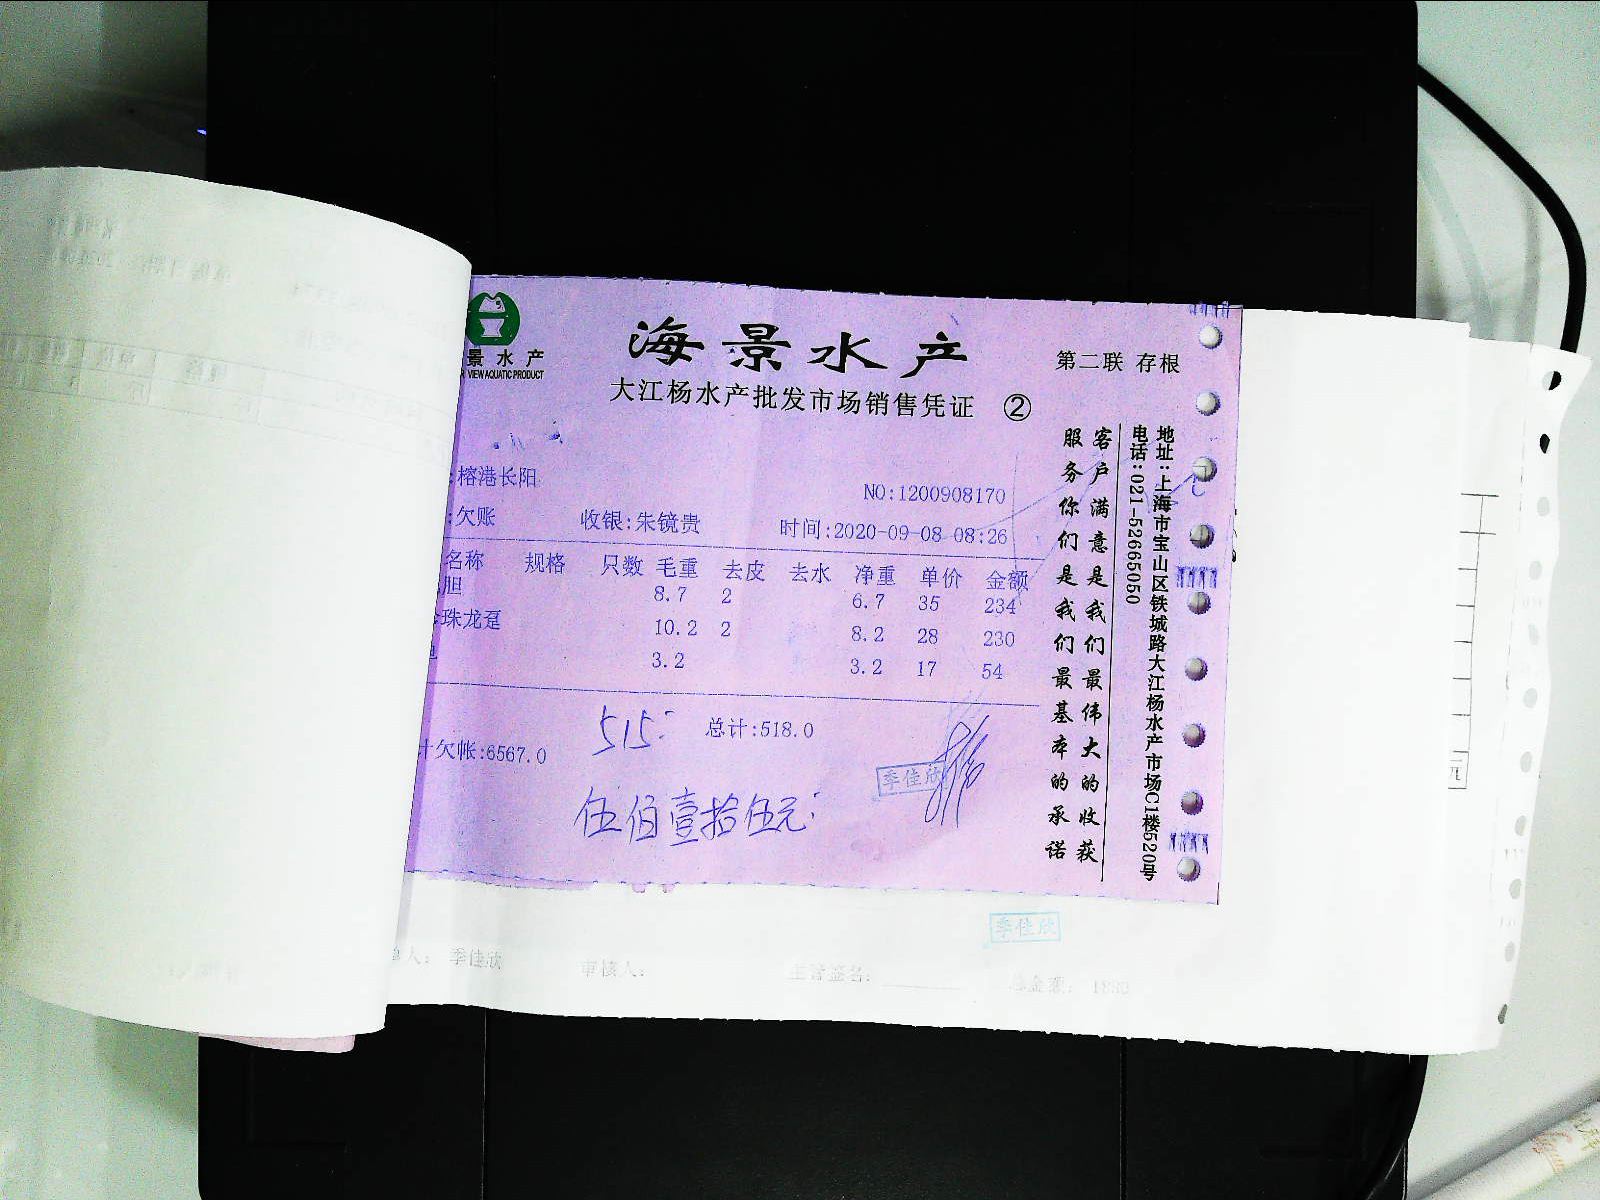 海景水产
景水产
VIEW AQUATIC PRODUCT
第二联 存根
大江杨水产批发市场销售凭证 ②
:榕港长阳
NO:1200908170
:欠账 收银:朱镜贵 时间:2020-09-08 08:26
名称 规格 只数 毛重 去皮 去水 净重 单价 金额
胆 8.7 2 6.7 35 234
珠龙趸 10.2 2 8.2 28 230
3.2 3.2 17 54
515 总计:518.0
计欠帐:6567.0
季佳欣
伍佰壹拾伍元
客户满意是我们最伟大的收获
服务你们是我们最基本的承诺
地址:上海市宝山区铁城路大江杨水产市场C1楼520号
电话:021-52665050
季佳欣
单人: 季佳欣 审核人: 主管签名: 总金额:
元